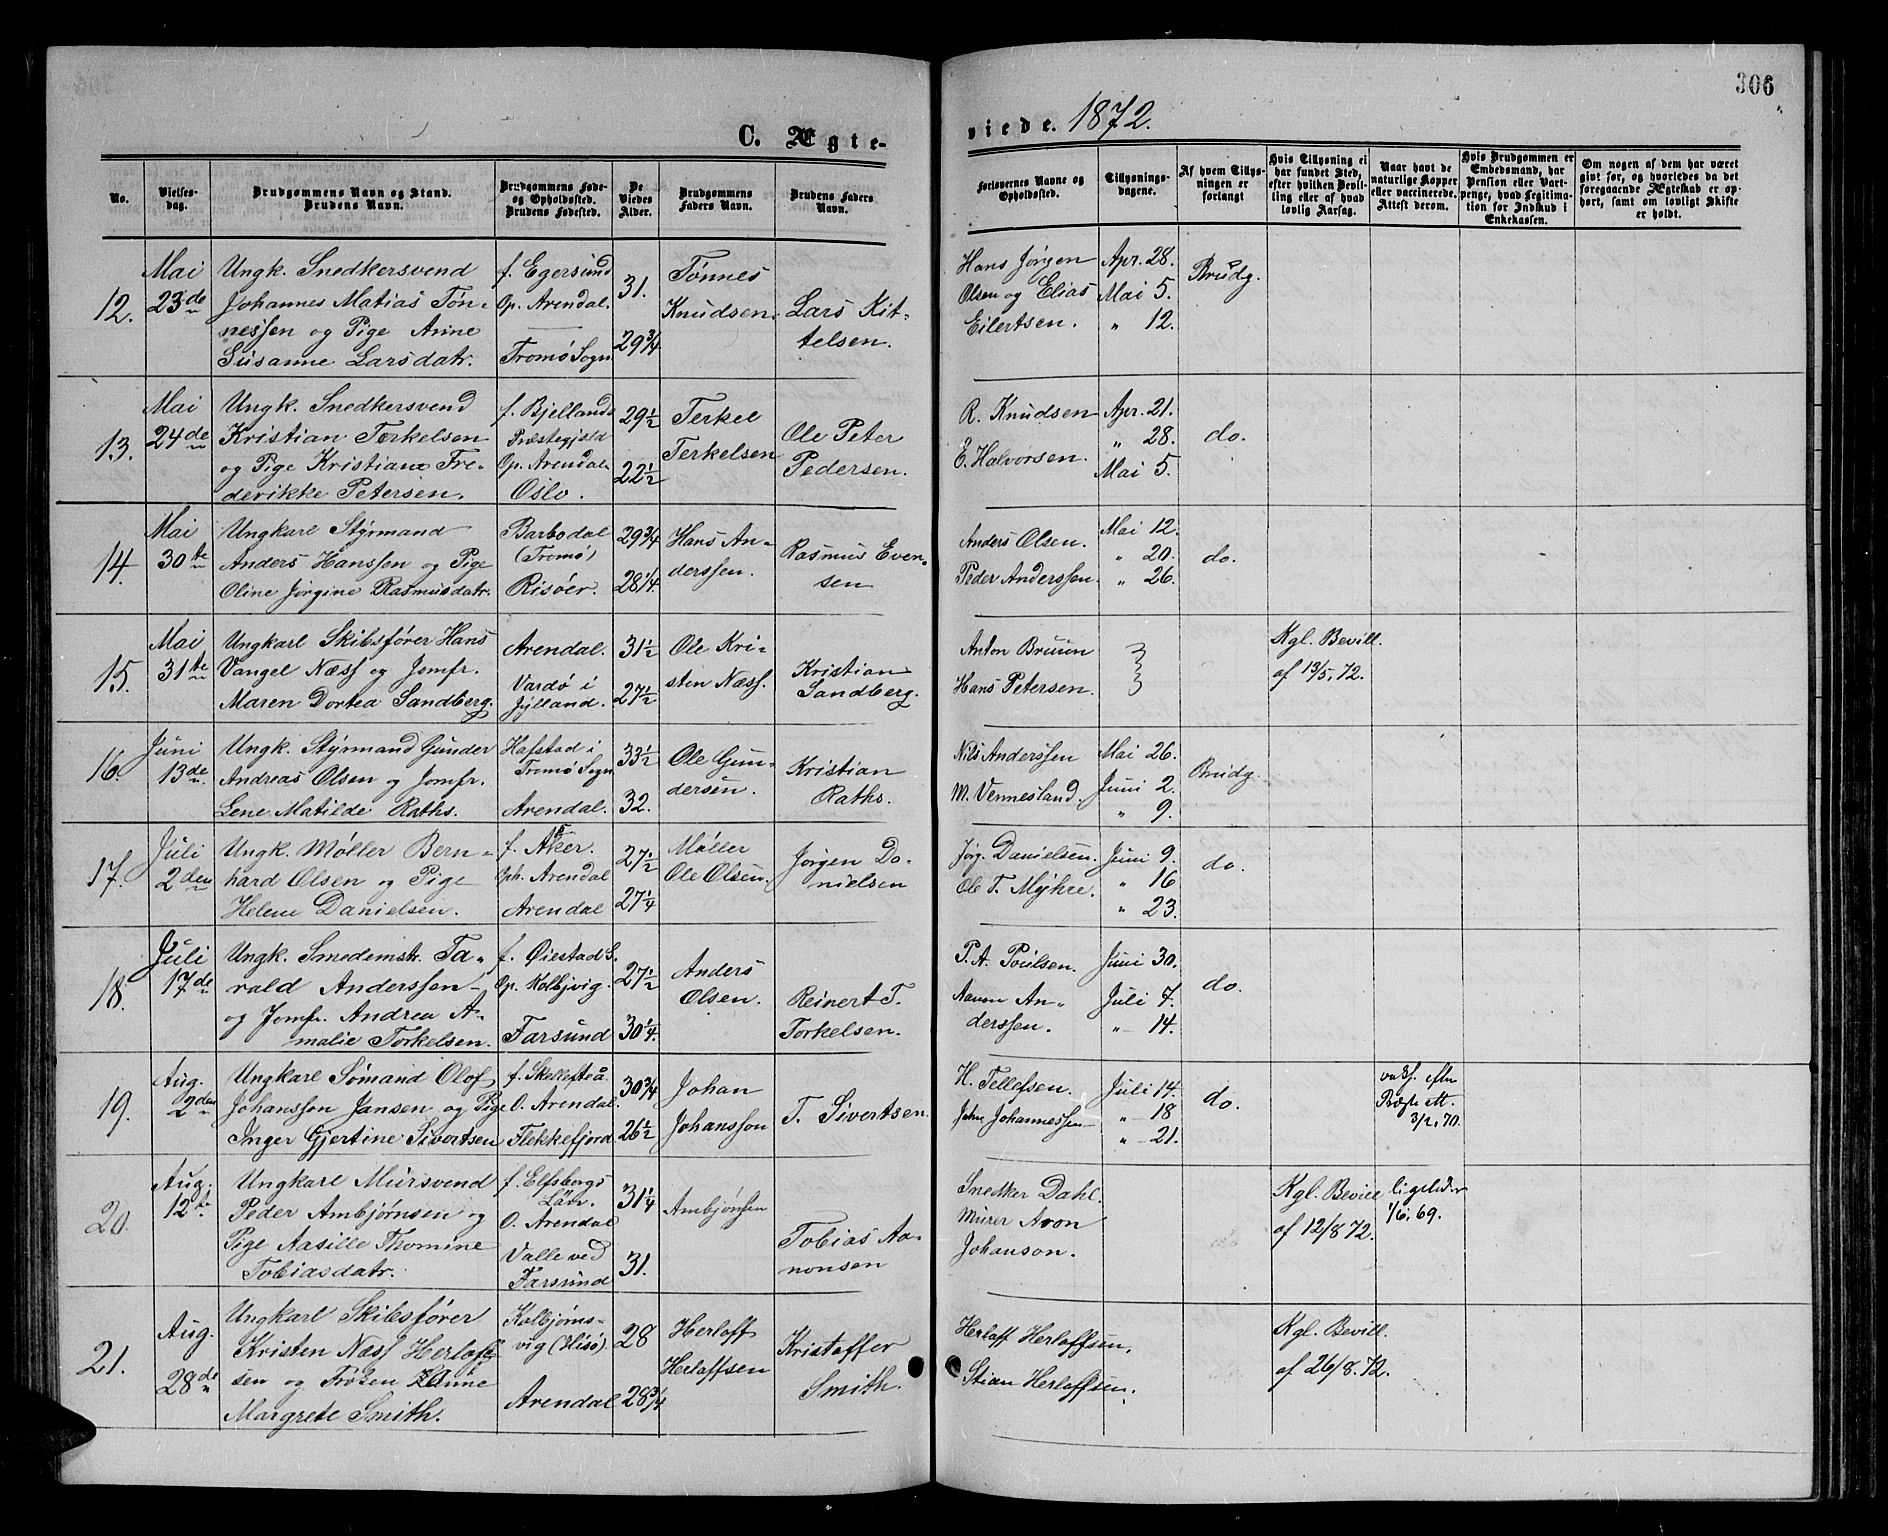 306
C. Ægte-
viede. 1872.
No.
Vielses-
dag.
Brudgommens Navn og Stand.
Brudens Navn.
Brudgommens Føde-
og Opholdssted.
Brudens Fødested.
De
Viedes
Alder.
Brudgommens
Faders Navn.
Brudens Faders
Navn.
Forlovernes Navne og
Opholdssted.
Tillysnings-
dagene.
Af hvem Tillys-
ningen er
forlangt
Hvis Tillysning ei
har fundet Sted,
efter hvilken Bevil-
ling eller af hvad
lovlig Aarsag.
Naar havt de
naturlige Kopper
eller vaccinerede.
Attest derom.
Hvis Brudgommen er
Embedsmand, har
Pension eller Vart-
penge, hvad Legitima-
tion for Indskud i
Enkekassen.
Om nogen af dem har været
gift før, og hvorledes da det
foregaaende Ægteskab er op-
hørt, samt om lovligt Skifte
er holdt.
12.
Mai
23de
Ungk. Snedkersvend
Johannes Matias Tøn-
nessen og Pige Anne
Susanne Larsdatr.
f. Egersund
Op. Arendal.
Tromø Sogn
31.
29 3/4
Tønnes
Knudsen.
Lars Kit-
telsen.
Hans Jørgen
Olsen og Elias
Eilertsen.
Apr. 28.
Mai 5.
" 12.
Brudg.
13.
Mai
24de
Ungk. Snedkersvend
Kristian Terkelsen
og Pige Kristiane Fre-
derikke Petersen.
f. Bjellands
Præstegjeld
Op. Arendal.
Oslo.
29 1/2
22 1/2
Terkel
Terkelsen
Ole Peter
Pedersen.
R. Knudsen
E. Halvorsen.
Apr. 21.
" 28.
Mai 5.
do.
14.
Mai
30te
Ungkarl Styrmand
Anders Hanssen og Pige
Oline Jørgine Rasmusdatr.
Barbodal
(Tromø)
Risöer.
29 3/4
28 1/4.
Hans An-
derssen.
Rasmus Even-
sen
Anders Olsen.
Peder Anderssen.
Mai 12.
" 20.
" 26.
do.
15.
Mai
31te
Ungkarl Skibsfører Hans
Vangel Næss og Jomfr.
Maren Dortea Sandberg.
Arendal.
Vardø i
Jylland.
31 1/2
27 1/2
Ole Kri-
sten Næss.
Kristian
Sandberg.
Anton Bruun
Hans Petersen.
Kgl. Bevill.
af 13/5, 72.
16.
Juni
13de
Ungk. Styrmand Gunder
Andreas Olsen og Jomfr.
Lene Matilde Raths.
Hafstad i
Tromø Sogn
Arendal.
33 1/2
32.
Ole Gun-
dersen.
Kristian
Raths.
Nils Anderssen
M. Vennesland.
Mai 26.
Juni 2.
" 9.
Brudg.
17.
Juli
2den
Ungk. Møller Bern-
hard Olsen og Pige
Helene Danielsen.
f. Aker.
Oph. Arendal
Arendal
27 1/2
27 1/4
Møller
Ole Olsen.
Jørgen Da-
nielsen
Jörg. Danielsen.
Ole T. Myhre.
Juni 9.
" 16
" 23.
do.
18.
Juli
17de
Ungk. Smedemstr. Ta-
rald Anderssen
og Jomfr. Andrea A-
malie Torkelsen.
f. Øiestad S.
Op. Kolbjvig.
Farsund
27 1/2
30 1/4.
Anders
Olsen.
Reinert T.
Torkelsen.
P. A. Poulsen.
Aanen An-
derssen.
Juni 30.
Juli 7.
" 14.
do.
19.
Aug.
2den
Ungkarl Sømand Olof
Johansson Jansen og Pige
Inger Gjertine Sivertsen
f. Skellefteå
O. Arendal.
Flekkefjord
30 3/4
26 1/2
Johan
Johansson
T. Sivertsen.
H. Tellefsen.
John Johannessen
Juli 14.
" 18
" 21.
do.
3/2, 70.
20.
Aug.
12te
Ungkarl Mursvend
Peder Ambjørnsen og
Pige Aasille Thomine
Tobiasdatr.
f. Elfsborgs
Län.
O. Arendal
Valle ved
Farsund
31 1/4
31.
Ambjønsen
Tobias Aa-
nonsen
Snedker Dahl.
Murer Aron
Johanson.
Kgl. Bevill
af 12/8 72.
ligeleder
1/6, 69.
21.
Aug.
28de
Ungkarl Skibsfører
Kristen Næss Herlof-
sen og Frøken Anne
Margrete Smith.
Kolbjørns-
vig (Hisø).
Arendal
28
28 3/4
Herloff
Herloffsen
Kristoffer
Smith.
Herloff Herloffsen.
Stian Herloffsen.
Kgl. Bevill.
af 26/8. 72.